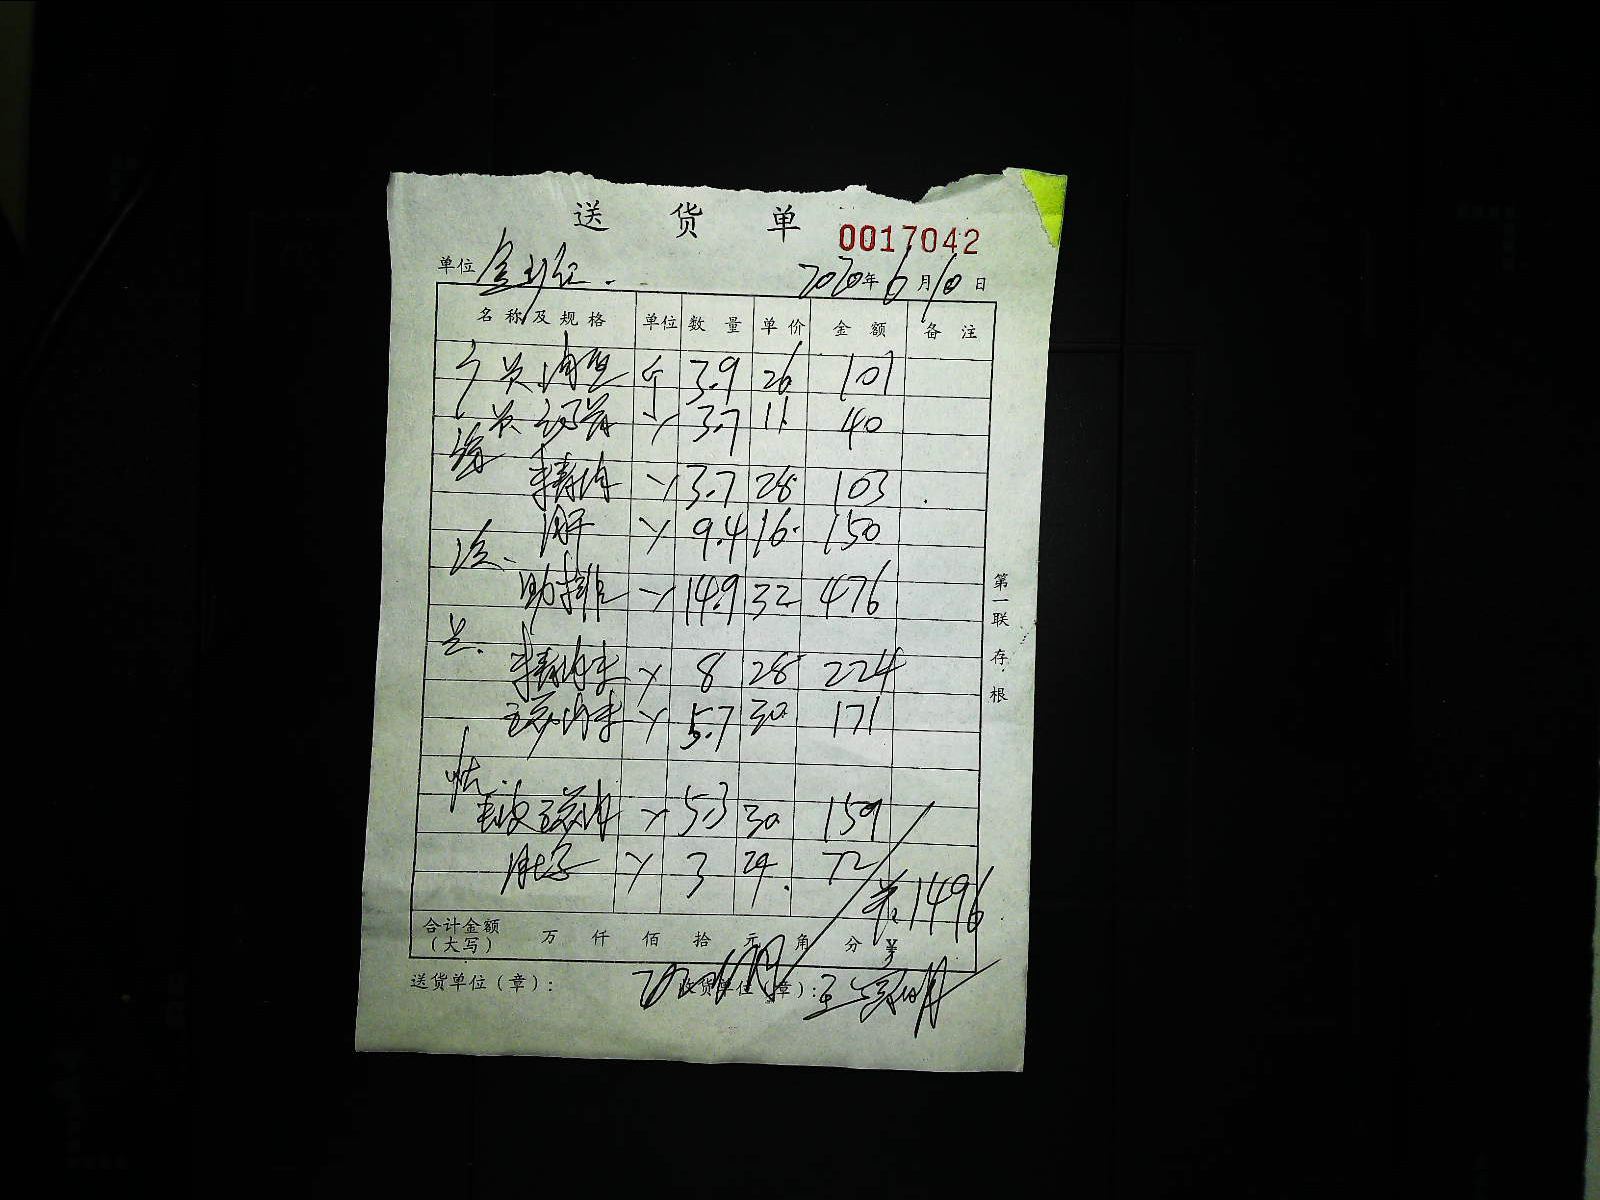 送 货 单
0017042
单位
2020年6月10日
名称及规格 单位 数量 单价 金额 备注
斤 3.9 26 101
3.7 11 40
精肉 3.7 28 103
9.4 16 150
肋排 14.9 32 476
精肉末 8 28 224
五花肉末 5.7 30 171
去皮五花肉 5.3 30 159
肚子 3 24 72
共:1496
合计金额(大写) 万 仟 佰 拾 元 角 分 ¥
送货单位(章): 收货单位(章):
第一联 存根